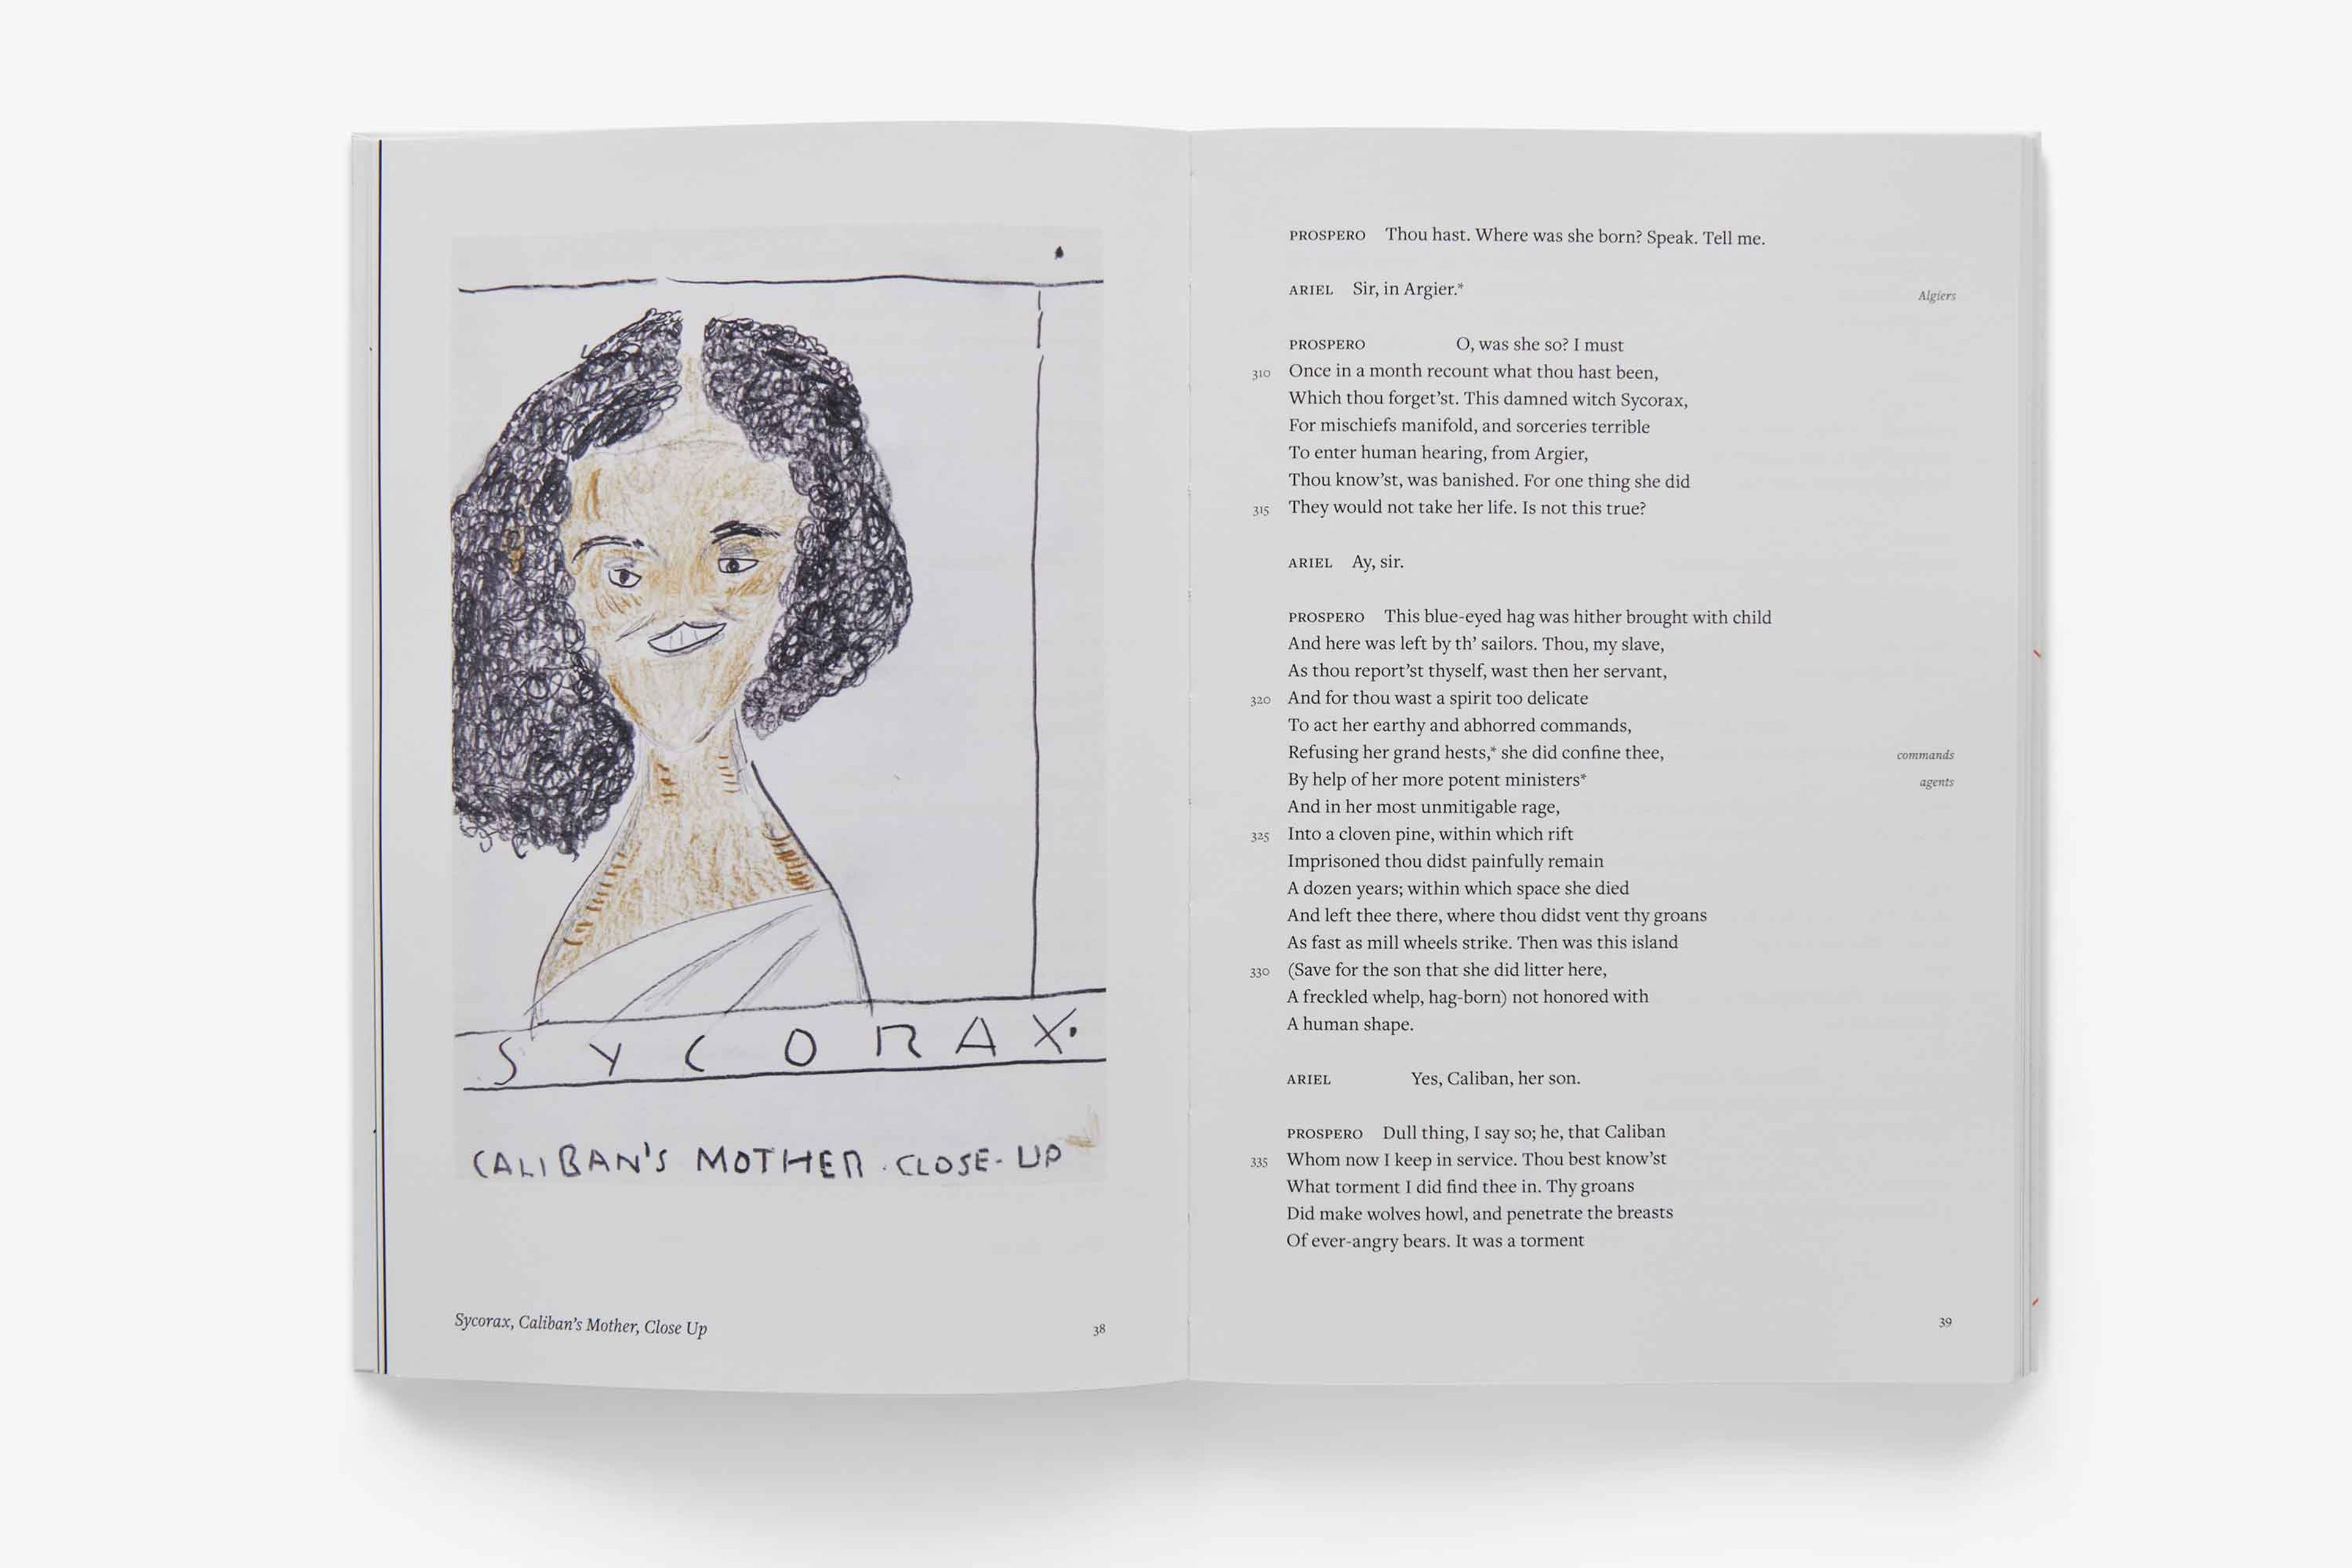 SYCORAX.
CALIBAN'S MOTHER . CLOSE-UP
Sycorax, Caliban's Mother, Close Up
38
PROSPERO Thou hast. Where was she born? Speak. Tell me.
ARIEL Sir, in Argier.* Algiers
PROSPERO O, was she so? I must
310 Once in a month recount what thou hast been,
Which thou forget'st. This damned witch Sycorax,
For mischiefs manifold, and sorceries terrible
To enter human hearing, from Argier,
Thou know'st, was banished. For one thing she did
315 They would not take her life. Is not this true?
ARIEL Ay, sir.
PROSPERO This blue-eyed hag was hither brought with child
And here was left by th' sailors. Thou, my slave,
As thou report'st thyself, wast then her servant,
320 And for thou wast a spirit too delicate
To act her earthy and abhorred commands,
Refusing her grand hests,* she did confine thee, commands
By help of her more potent ministers* agents
And in her most unmitigable rage,
325 Into a cloven pine, within which rift
Imprisoned thou didst painfully remain
A dozen years; within which space she died
And left thee there, where thou didst vent thy groans
As fast as mill wheels strike. Then was this island
330 (Save for the son that she did litter here,
A freckled whelp, hag-born) not honored with
A human shape.
ARIEL Yes, Caliban, her son.
PROSPERO Dull thing, I say so; he, that Caliban
335 Whom now I keep in service. Thou best know'st
What torment I did find thee in. Thy groans
Did make wolves howl, and penetrate the breasts
Of ever-angry bears. It was a torment
39